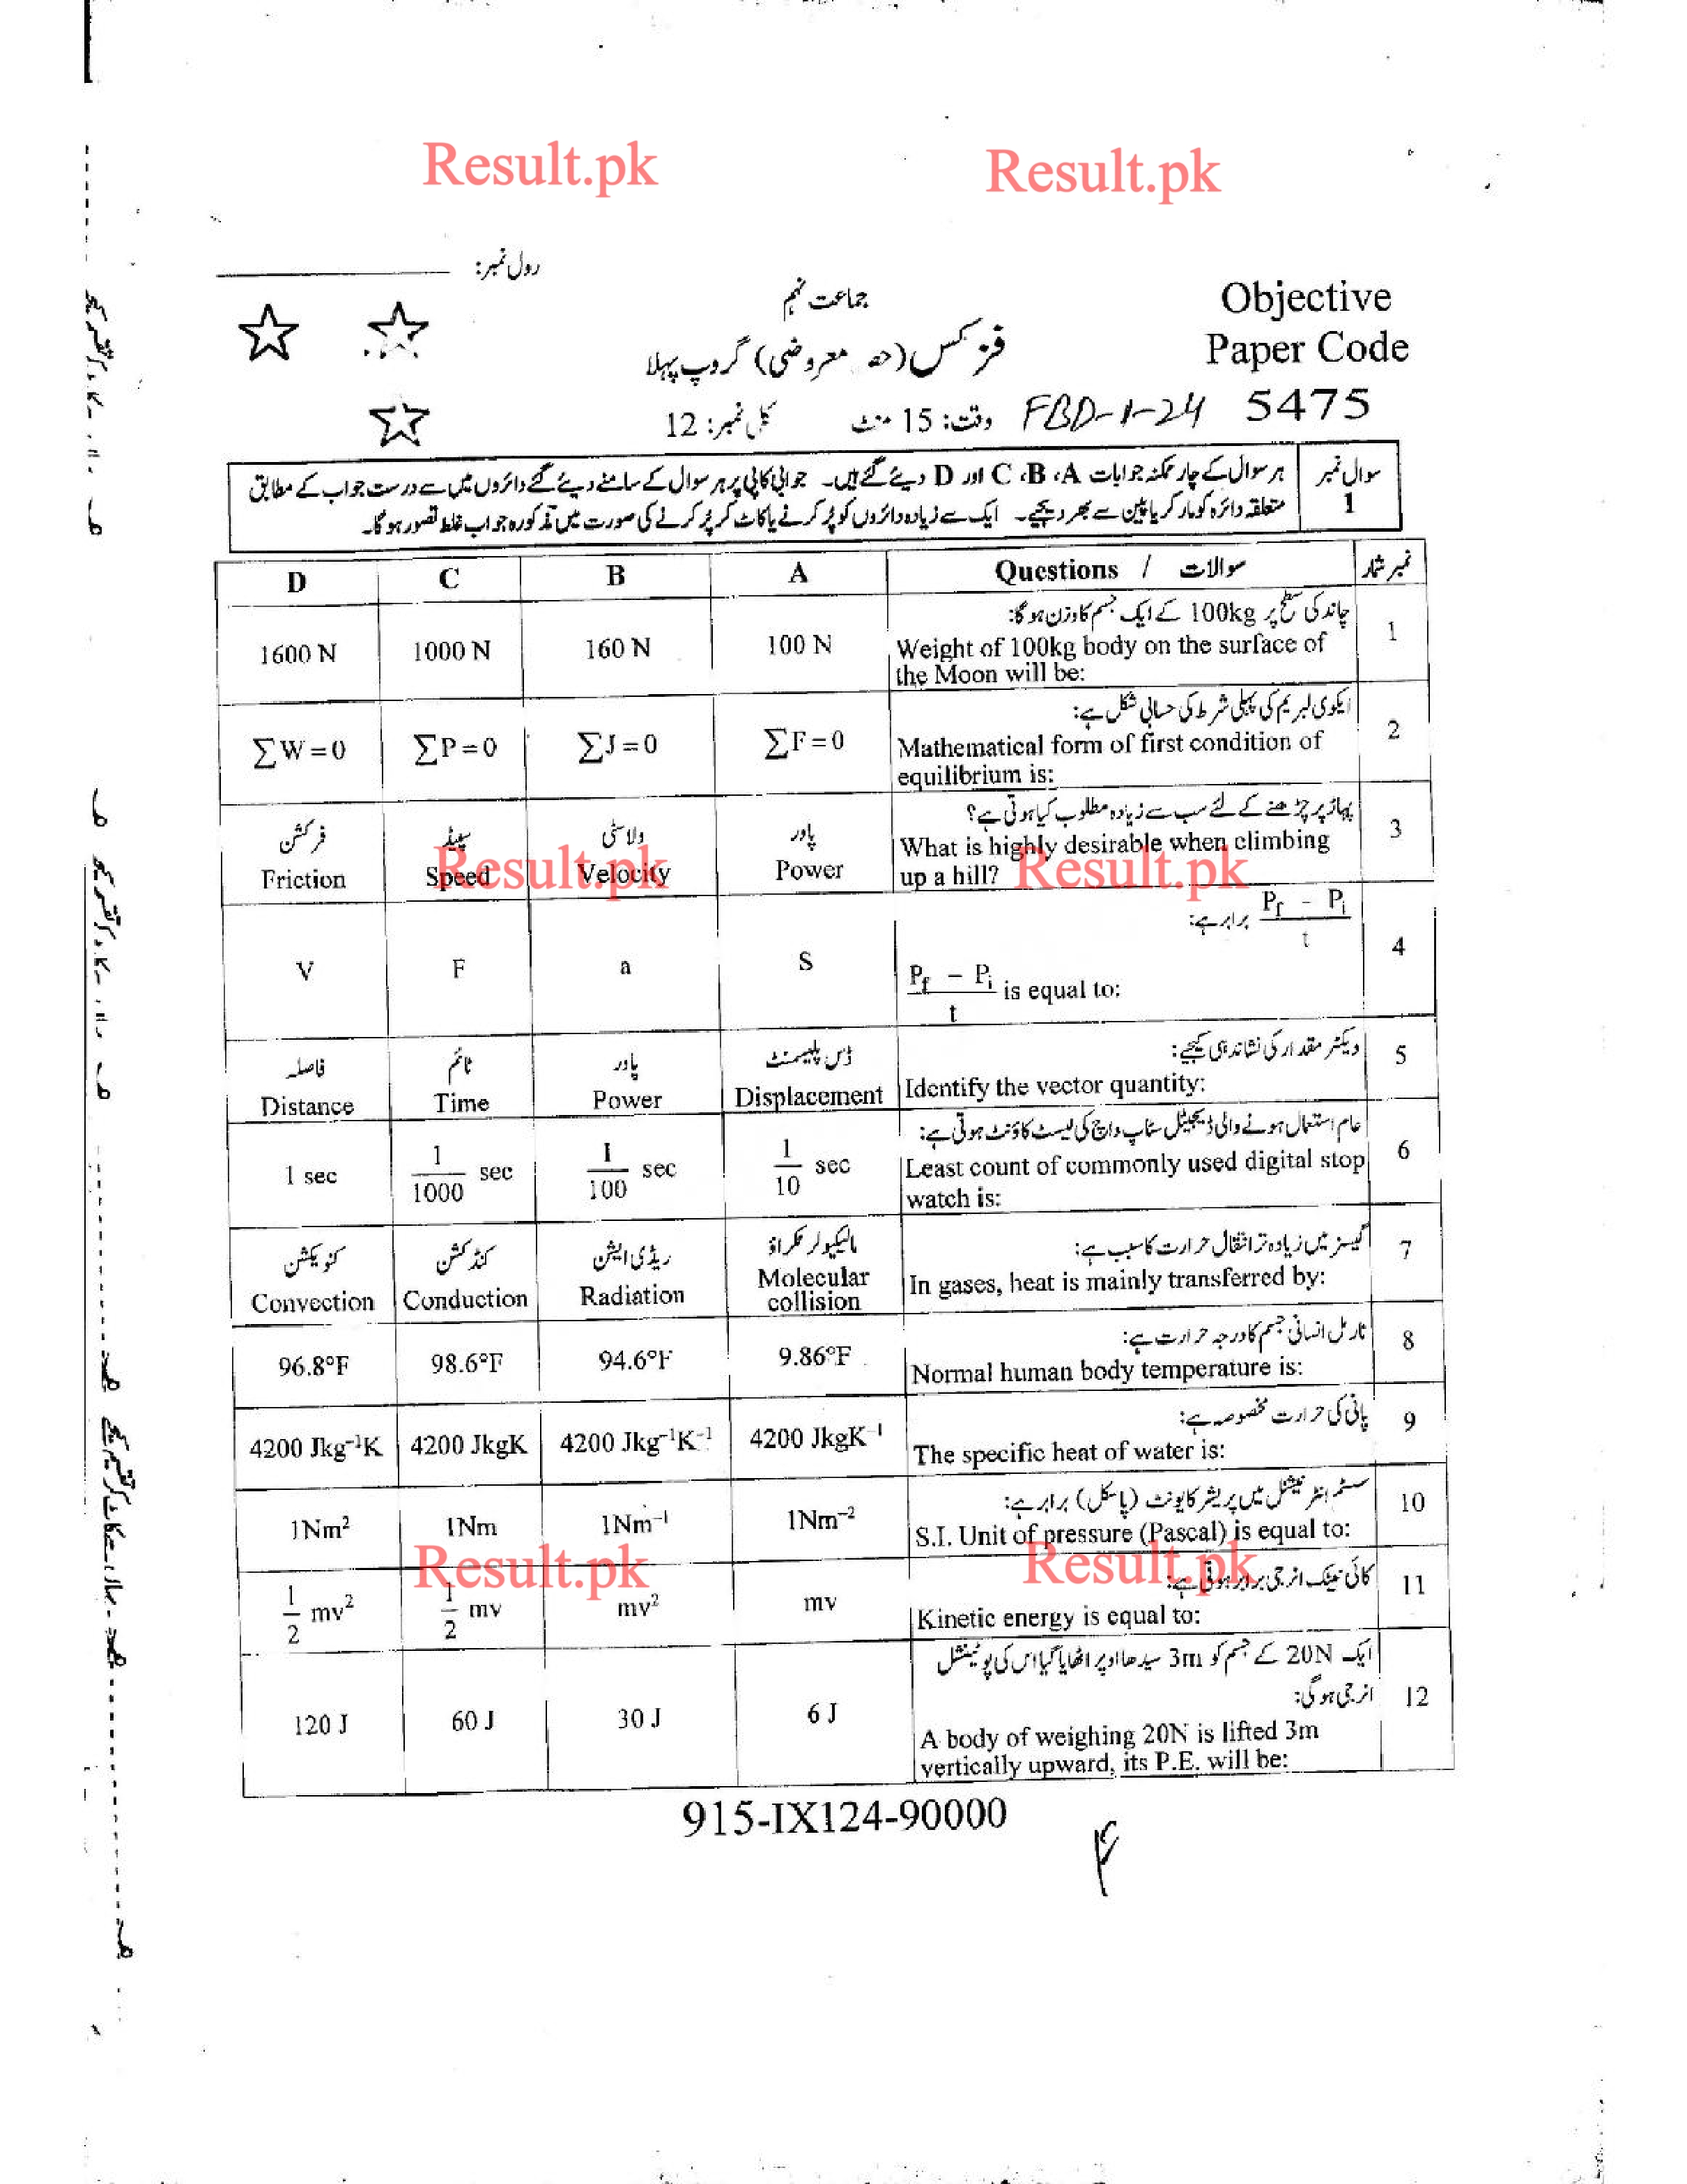 Result.pk
Result.pk
رول نمبر:
جماعت نہم
Objective
Paper Code
فزکس (حصہ معروضی) گروپ پہلا
5475
FBD-1-24
وقت: 15 منٹ
کل نمبر: 12
سوال نمبر 1
ہر سوال کے چار ممکنہ جوابات A، B، C اور D دیئے گئے ہیں۔ جوابی کاپی پر ہر سوال کے سامنے دیئے گئے دائروں میں سے درست جواب کے مطابق
متعلقہ دائرہ کو مارکر یا پین سے بھر دیجیے۔ ایک سے زیادہ دائروں کو پُر کرنے یا کاٹ کر پُر کرنے کی صورت میں مذکورہ جواب غلط تصور ہوگا۔
D C B A Questions / سوالات نمبر شمار
چاند کی سطح پر 100kg کے ایک جسم کا وزن ہوگا: 1
1600 N 1000 N 160 N 100 N Weight of 100kg body on the surface of
the Moon will be:
ایکوی لبریم کی پہلی شرط کی حسابی شکل ہے: 2
∑W=0 ∑P=0 ∑J=0 ∑F=0 Mathematical form of first condition of
equilibrium is:
پہاڑ پر چڑھنے کے لئے سب سے زیادہ مطلوب کیا ہوتی ہے؟ 3
فرکشن سپیڈ ولاسٹی پاور What is highly desirable when climbing
Friction Speed Velocity Power up a hill?
Result.pk Result.pk
(P_f − P_i)/t برابر ہے: 4
V F a S (P_f − P_i)/t is equal to:
فاصلہ ٹائم پاور ڈس پلیسمنٹ ویکٹر مقدار کی نشاندہی کیجیے: 5
Distance Time Power Displacement Identify the vector quantity:
عام استعمال ہونے والی ڈیجیٹل سٹاپ واچ کی لیسٹ کاؤنٹ ہوتی ہے: 6
1 sec 1/1000 sec 1/100 sec 1/10 sec Least count of commonly used digital stop
watch is:
کنویکشن کنڈکشن ریڈی ایشن مالیکیولر ٹکراؤ گیسز میں زیادہ تر انتقال حرارت کا سبب ہے: 7
Convection Conduction Radiation Molecular collision In gases, heat is mainly transferred by:
نارمل انسانی جسم کا درجہ حرارت ہے: 8
96.8°F 98.6°F 94.6°F 9.86°F Normal human body temperature is:
پانی کی حرارت مخصوصہ ہے: 9
4200 Jkg⁻¹K 4200 JkgK 4200 Jkg⁻¹K⁻¹ 4200 JkgK⁻¹ The specific heat of water is:
سسٹم انٹرنیشنل میں پریشر کا یونٹ (پاسکل) برابر ہے: 10
1Nm² 1Nm 1Nm⁻¹ 1Nm⁻² S.I. Unit of pressure (Pascal) is equal to:
Result.pk Result.pk
کائی نیٹک انرجی برابر ہوتی ہے: 11
1/2 mv² 1/2 mv mv² mv Kinetic energy is equal to:
ایک 20N کے جسم کو 3m سیدھا اوپر اٹھایا گیا اس کی پوٹینشل
انرجی ہوگی: 12
120 J 60 J 30 J 6 J A body of weighing 20N is lifted 3m
vertically upward, its P.E. will be:
915-IX124-90000